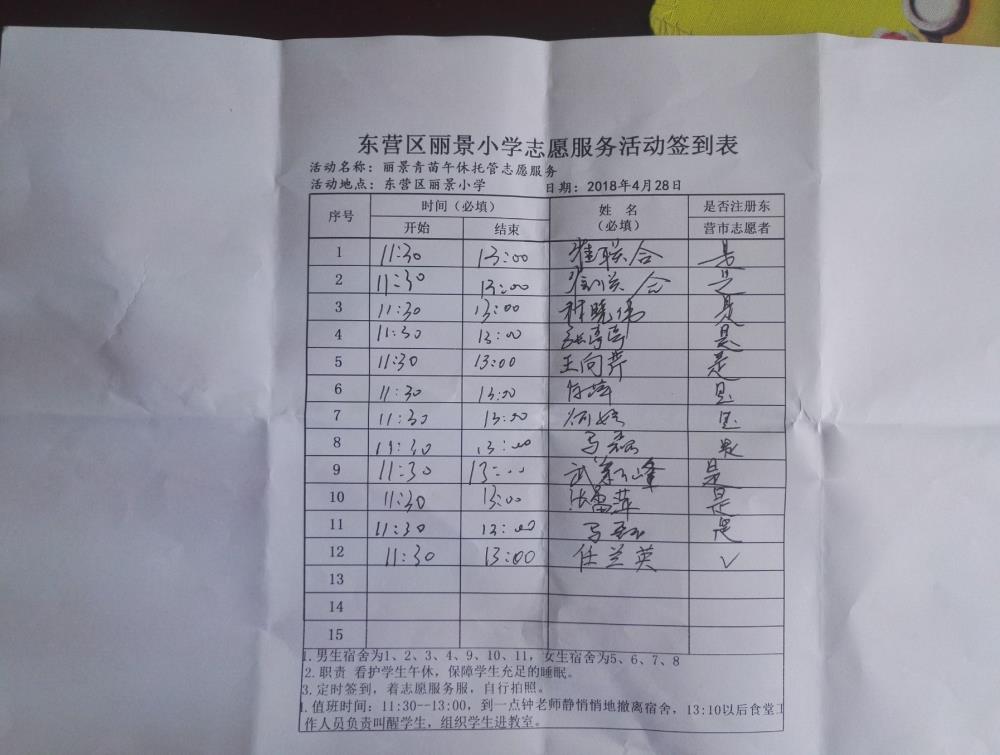 东营区丽景小学志愿服务活动签到表
活动名称：丽景青苗午休托管志愿服务
活动地点：东营区丽景小学 日期：2018年4月28日
序号 时间（必填） 姓名（必填） 是否注册东营市志愿者
开始 结束
1 11:30 13:00 崔联合 是
2 11:30 13:00 是
3 11:30 13:00 程晓伟 是
4 11:30 13:00 张婷婷 是
5 11:30 13:00 王向芹 是
6 11:30 13:00 是
7 11:30 13:00 是
8 11:30 13:00 马磊 是
9 11:30 13:00 是
10 11:30 13:00 张雪萍 是
11 11:30 13:00 是
12 11:30 13:00 任兰英 √
13
14
15
1.男生宿舍为1、2、3、4、9、10、11，女生宿舍为5、6、7、8
2.职责 看护学生午休，保障学生充足的睡眠。
3.定时签到，着志愿服务服，自行拍照。
1.值班时间：11:30--13:00，到一点钟老师静悄悄地撤离宿舍，13:10以后食堂工
作人员负责叫醒学生，组织学生进教室。